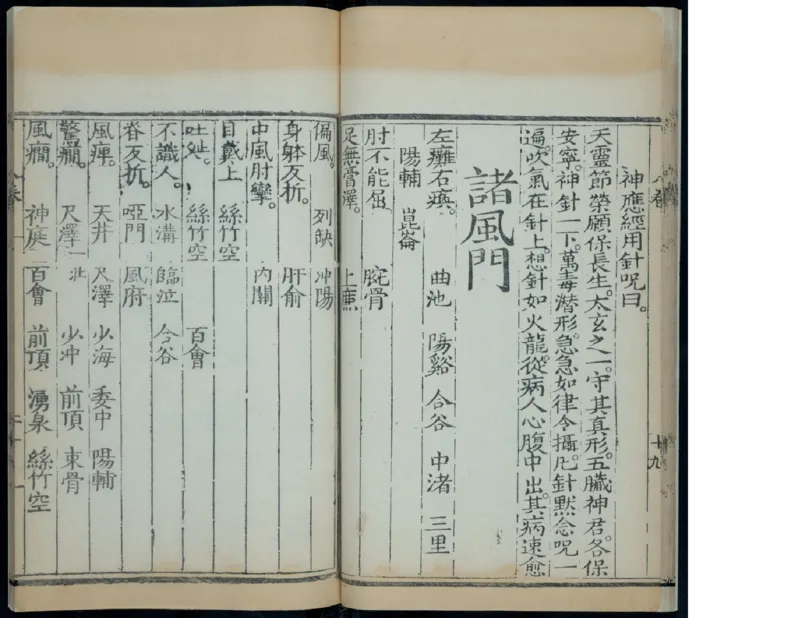 神應經用針呪曰。
天靈節榮願保長生。太玄之一。守其真形。五臟神君。各保
安寧。神針一下。萬毒潛形。急急如律令攝。凡針默念呪一
遍。吹氣在針上。想針如火龍。從病人心腹中出。其病速愈
諸風門
左癱右瘓。 曲池 陽谿 合谷 中渚 三里
陽輔 崑崙
肘不能屈 腕骨
足無膏澤。 上廉
偏風。 列缺 冲陽
身躰反折。 肝俞
中風肘攣。 內關
目戴上 絲竹空
吐涎。 絲竹空 百會
不識人。 水溝 臨泣 合谷
脊反折。 啞門 風府
風痺。 天井 尺澤 少海 委中 陽輔
驚癇。 尺澤一壯 少冲 前頂 束骨
風癇。 神庭 百會 前頂 湧泉 絲竹空
十九